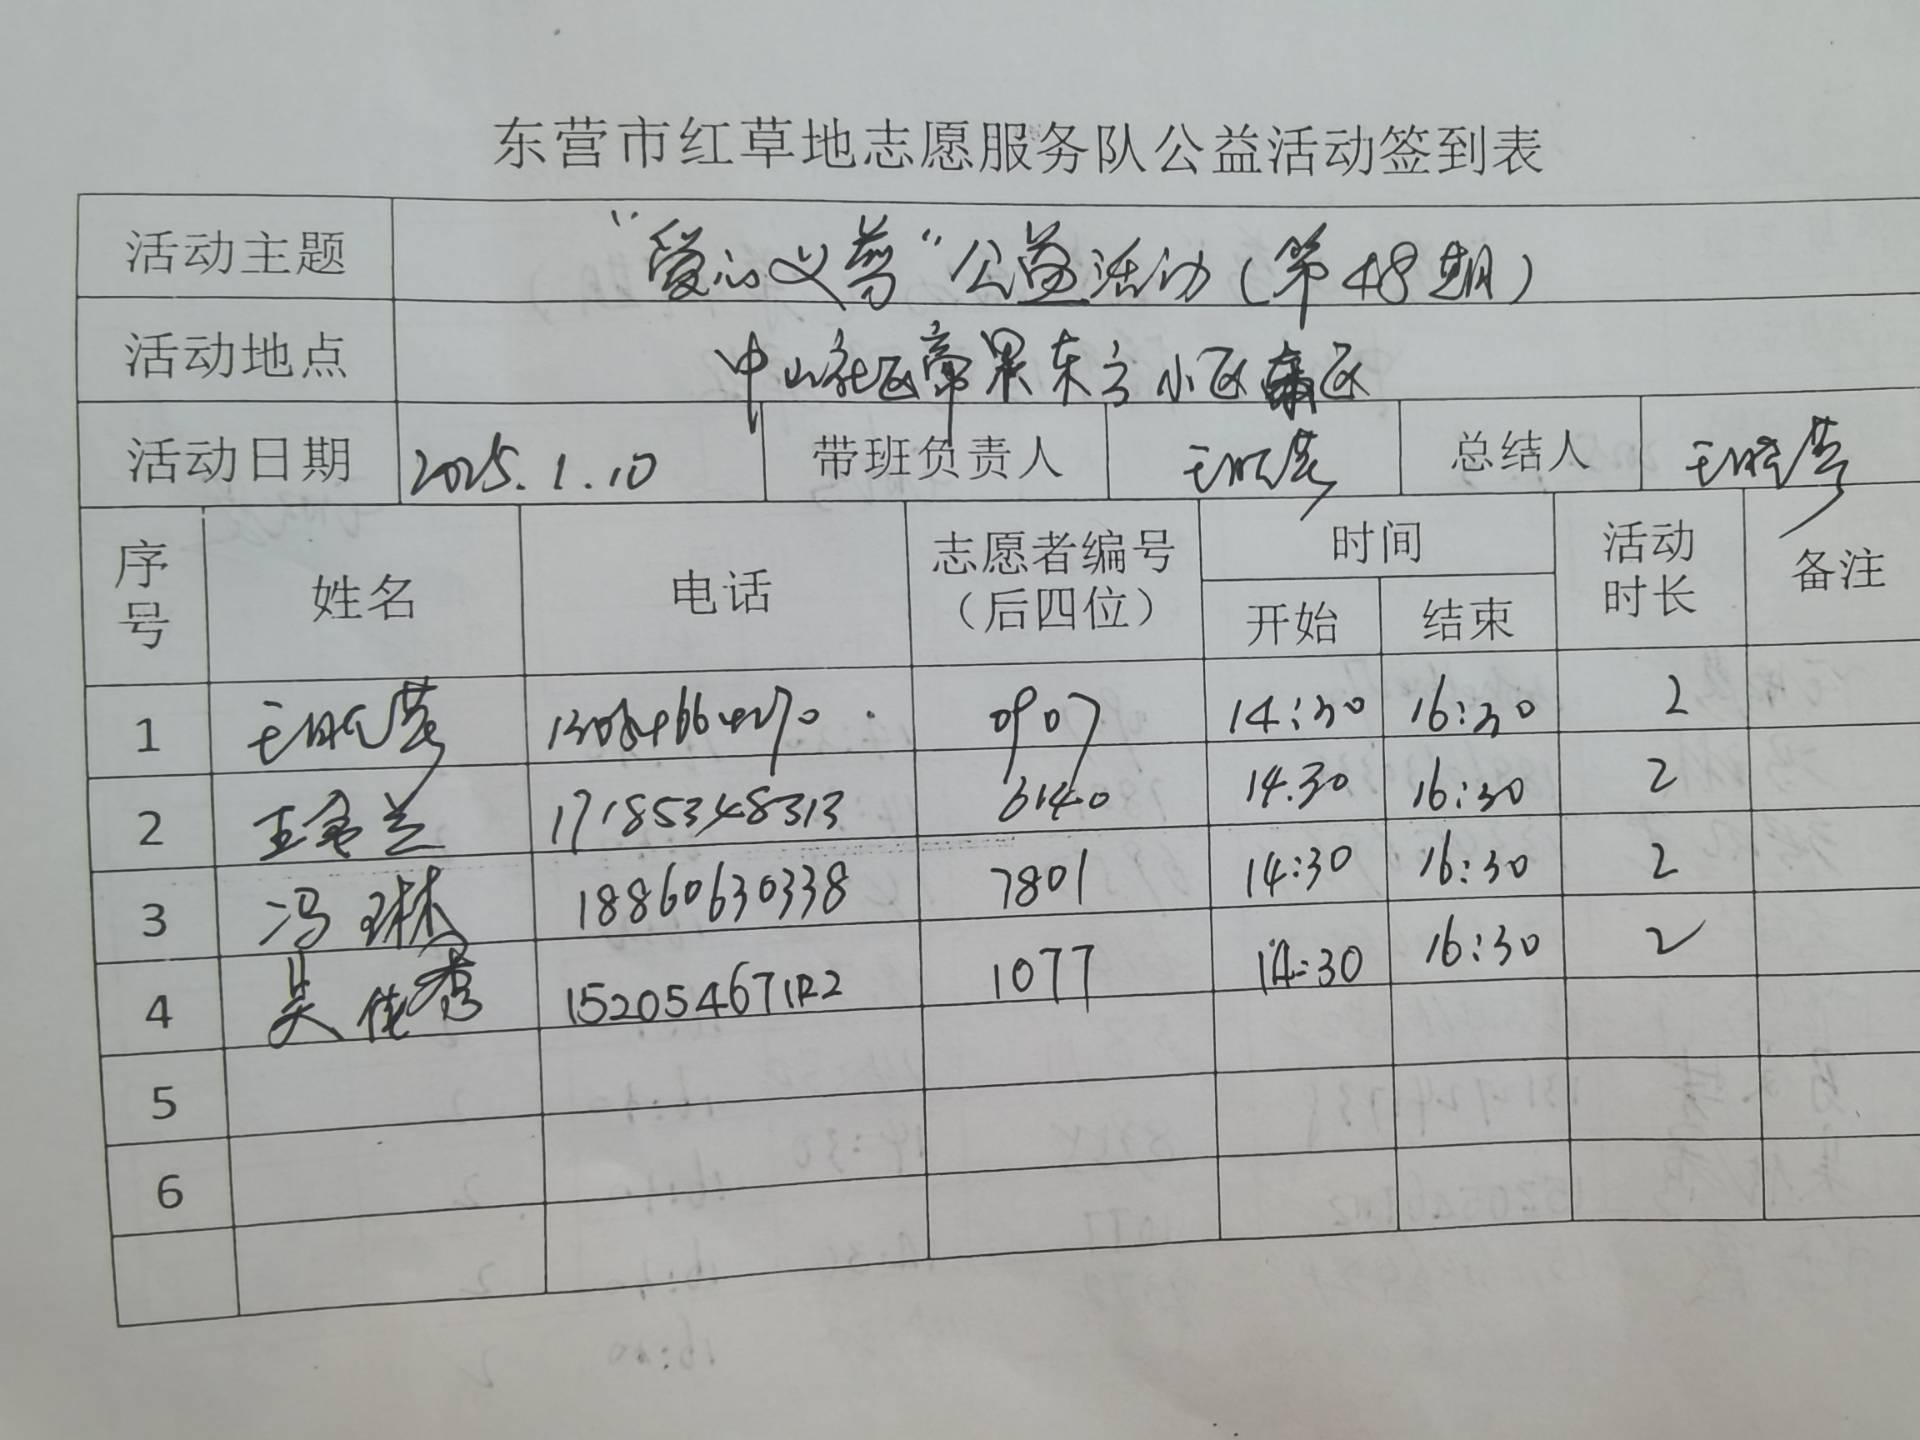 东营市红草地志愿服务队公益活动签到表
活动主题 “爱心义剪”公益活动(第48期)
活动地点 中山社区帝景东方小区 区
活动日期 2025.1.10 带班负责人 王晓燕 总结人 王晓燕
序号 姓名 电话 志愿者编号(后四位) 时间 开始 结束 活动时长 备注
1 王晓燕 0907 14:30 16:30 2
2 王金兰 17185348313 6140 14.30 16:30 2
3 冯琳 18860630338 7801 14:30 16:30 2
4 吴佳秀 1077 14:30 16:30 2
5
6